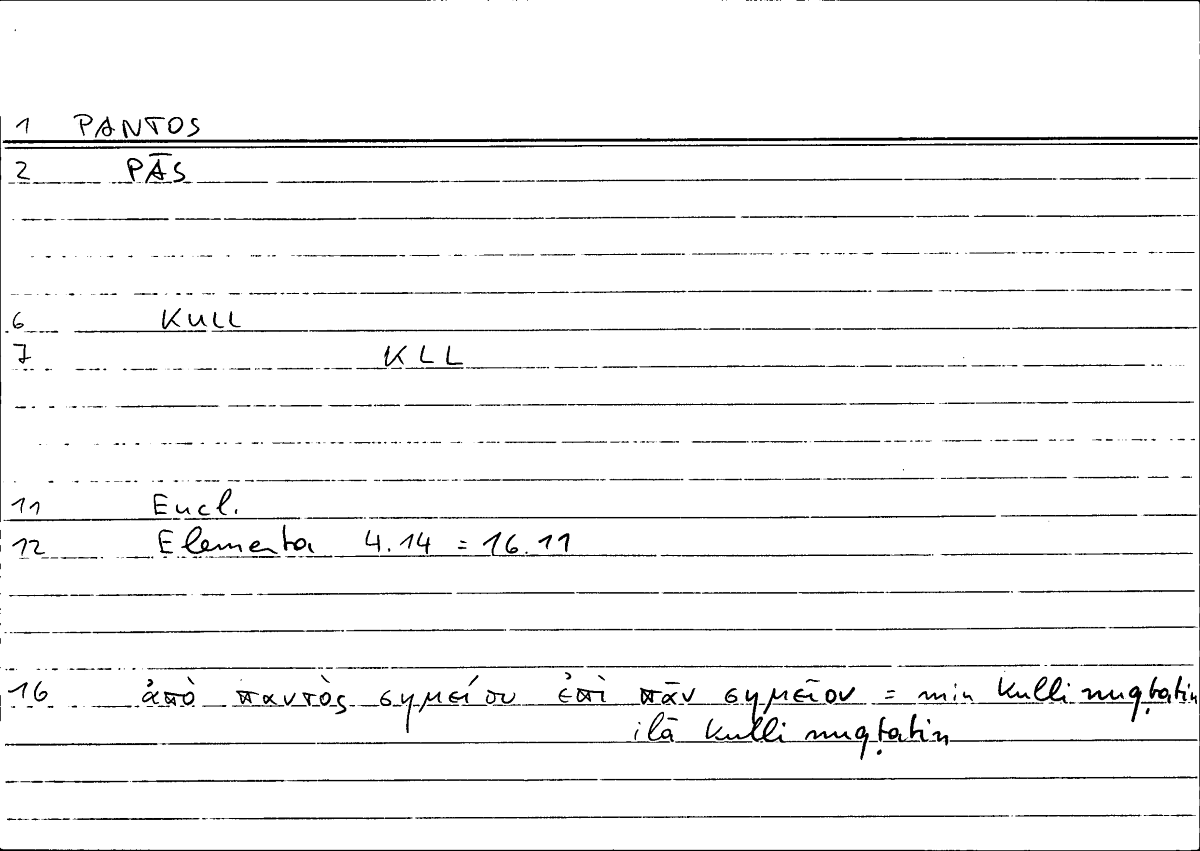 1 PANTOS
2 PĀS
6 KULL
7 KLL
11 Eucl.
12 Elementa 4.14 = 16.11
16 ἀπὸ παντὸς σημείου ἐπὶ πᾶν σημεῖον = min kulli nuqṭatin
ilā kulli nuqṭatin